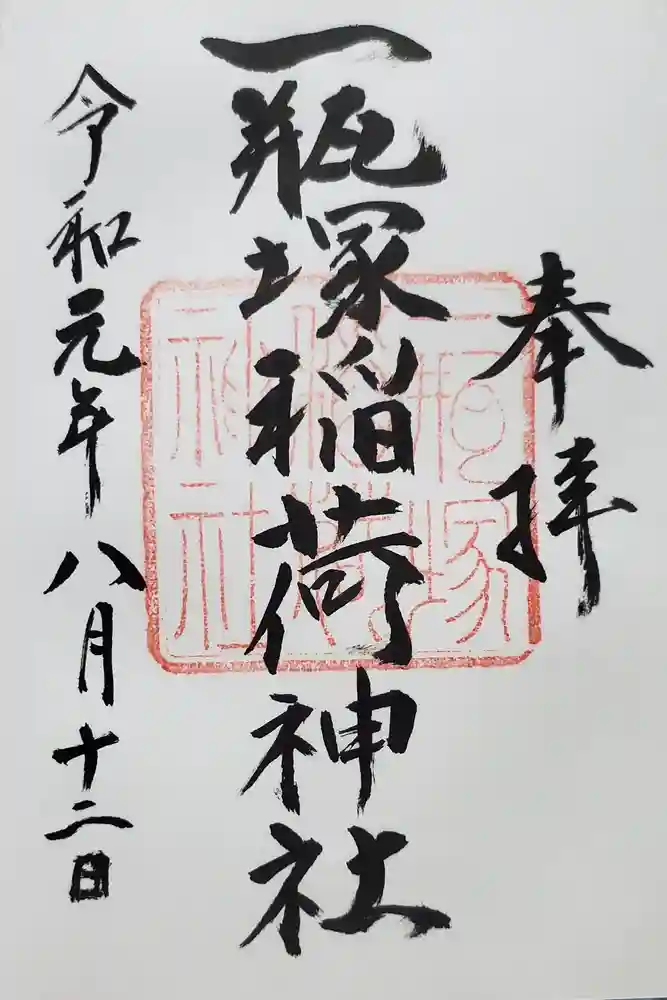 奉拝
一瓶塚稲荷神社
一瓶塚稲荷神社
令和元年八月十二日